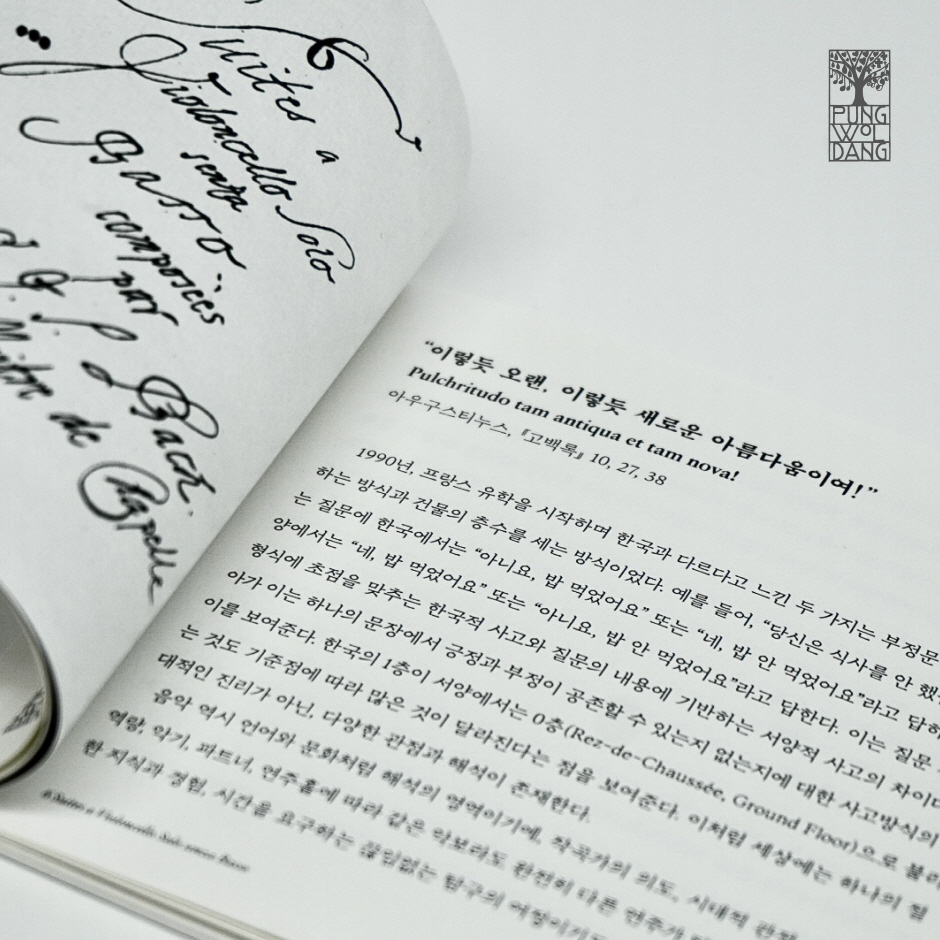 6
Suites a
Violoncello Solo
senza
Basso
composées
par
J. S. Bach.
de Capelle
PUNG
WOL
DANG
“이렇듯 오랜, 이렇듯 새로운 아름다움이여!”
Pulchritudo tam antiqua et tam nova!
아우구스티누스, 『고백록』 10, 27, 38
1990년, 프랑스 유학을 시작하며 한국과 다르다고 느낀 두 가지는 부정문
하는 방식과 건물의 층수를 세는 방식이었다. 예를 들어, “당신은 식사를 안 했
는 질문에 한국에서는 “아니요, 밥 먹었어요” 또는 “네, 밥 안 먹었어요”라고 답하
양에서는 “네, 밥 먹었어요” 또는 “아니요, 밥 안 먹었어요”라고 답한다. 이는 질문
형식에 초점을 맞추는 한국적 사고와 질문의 내용에 기반하는 서양적 사고의 차이다
아가 이는 하나의 문장에서 긍정과 부정이 공존할 수 있는지 없는지에 대한 사고방식의
이를 보여준다. 한국의 1층이 서양에서는 0층(Rez-de-Chaussée, Ground Floor)으로 불리
는 것도 기준점에 따라 많은 것이 달라진다는 점을 보여준다. 이처럼 세상에는 하나의 절
대적인 진리가 아닌, 다양한 관점과 해석이 존재한다.
음악 역시 언어와 문화처럼 해석의 영역이기에, 작곡가의 의도, 시대적 관점
역량, 악기, 파트너, 연주홀에 따라 같은 악보라도 완전히 다른 연주가
한 지식과 경험, 시간을 요구하는 끊임없는 탐구의 여정이기
6 Suites a Violoncello Solo senza Basso